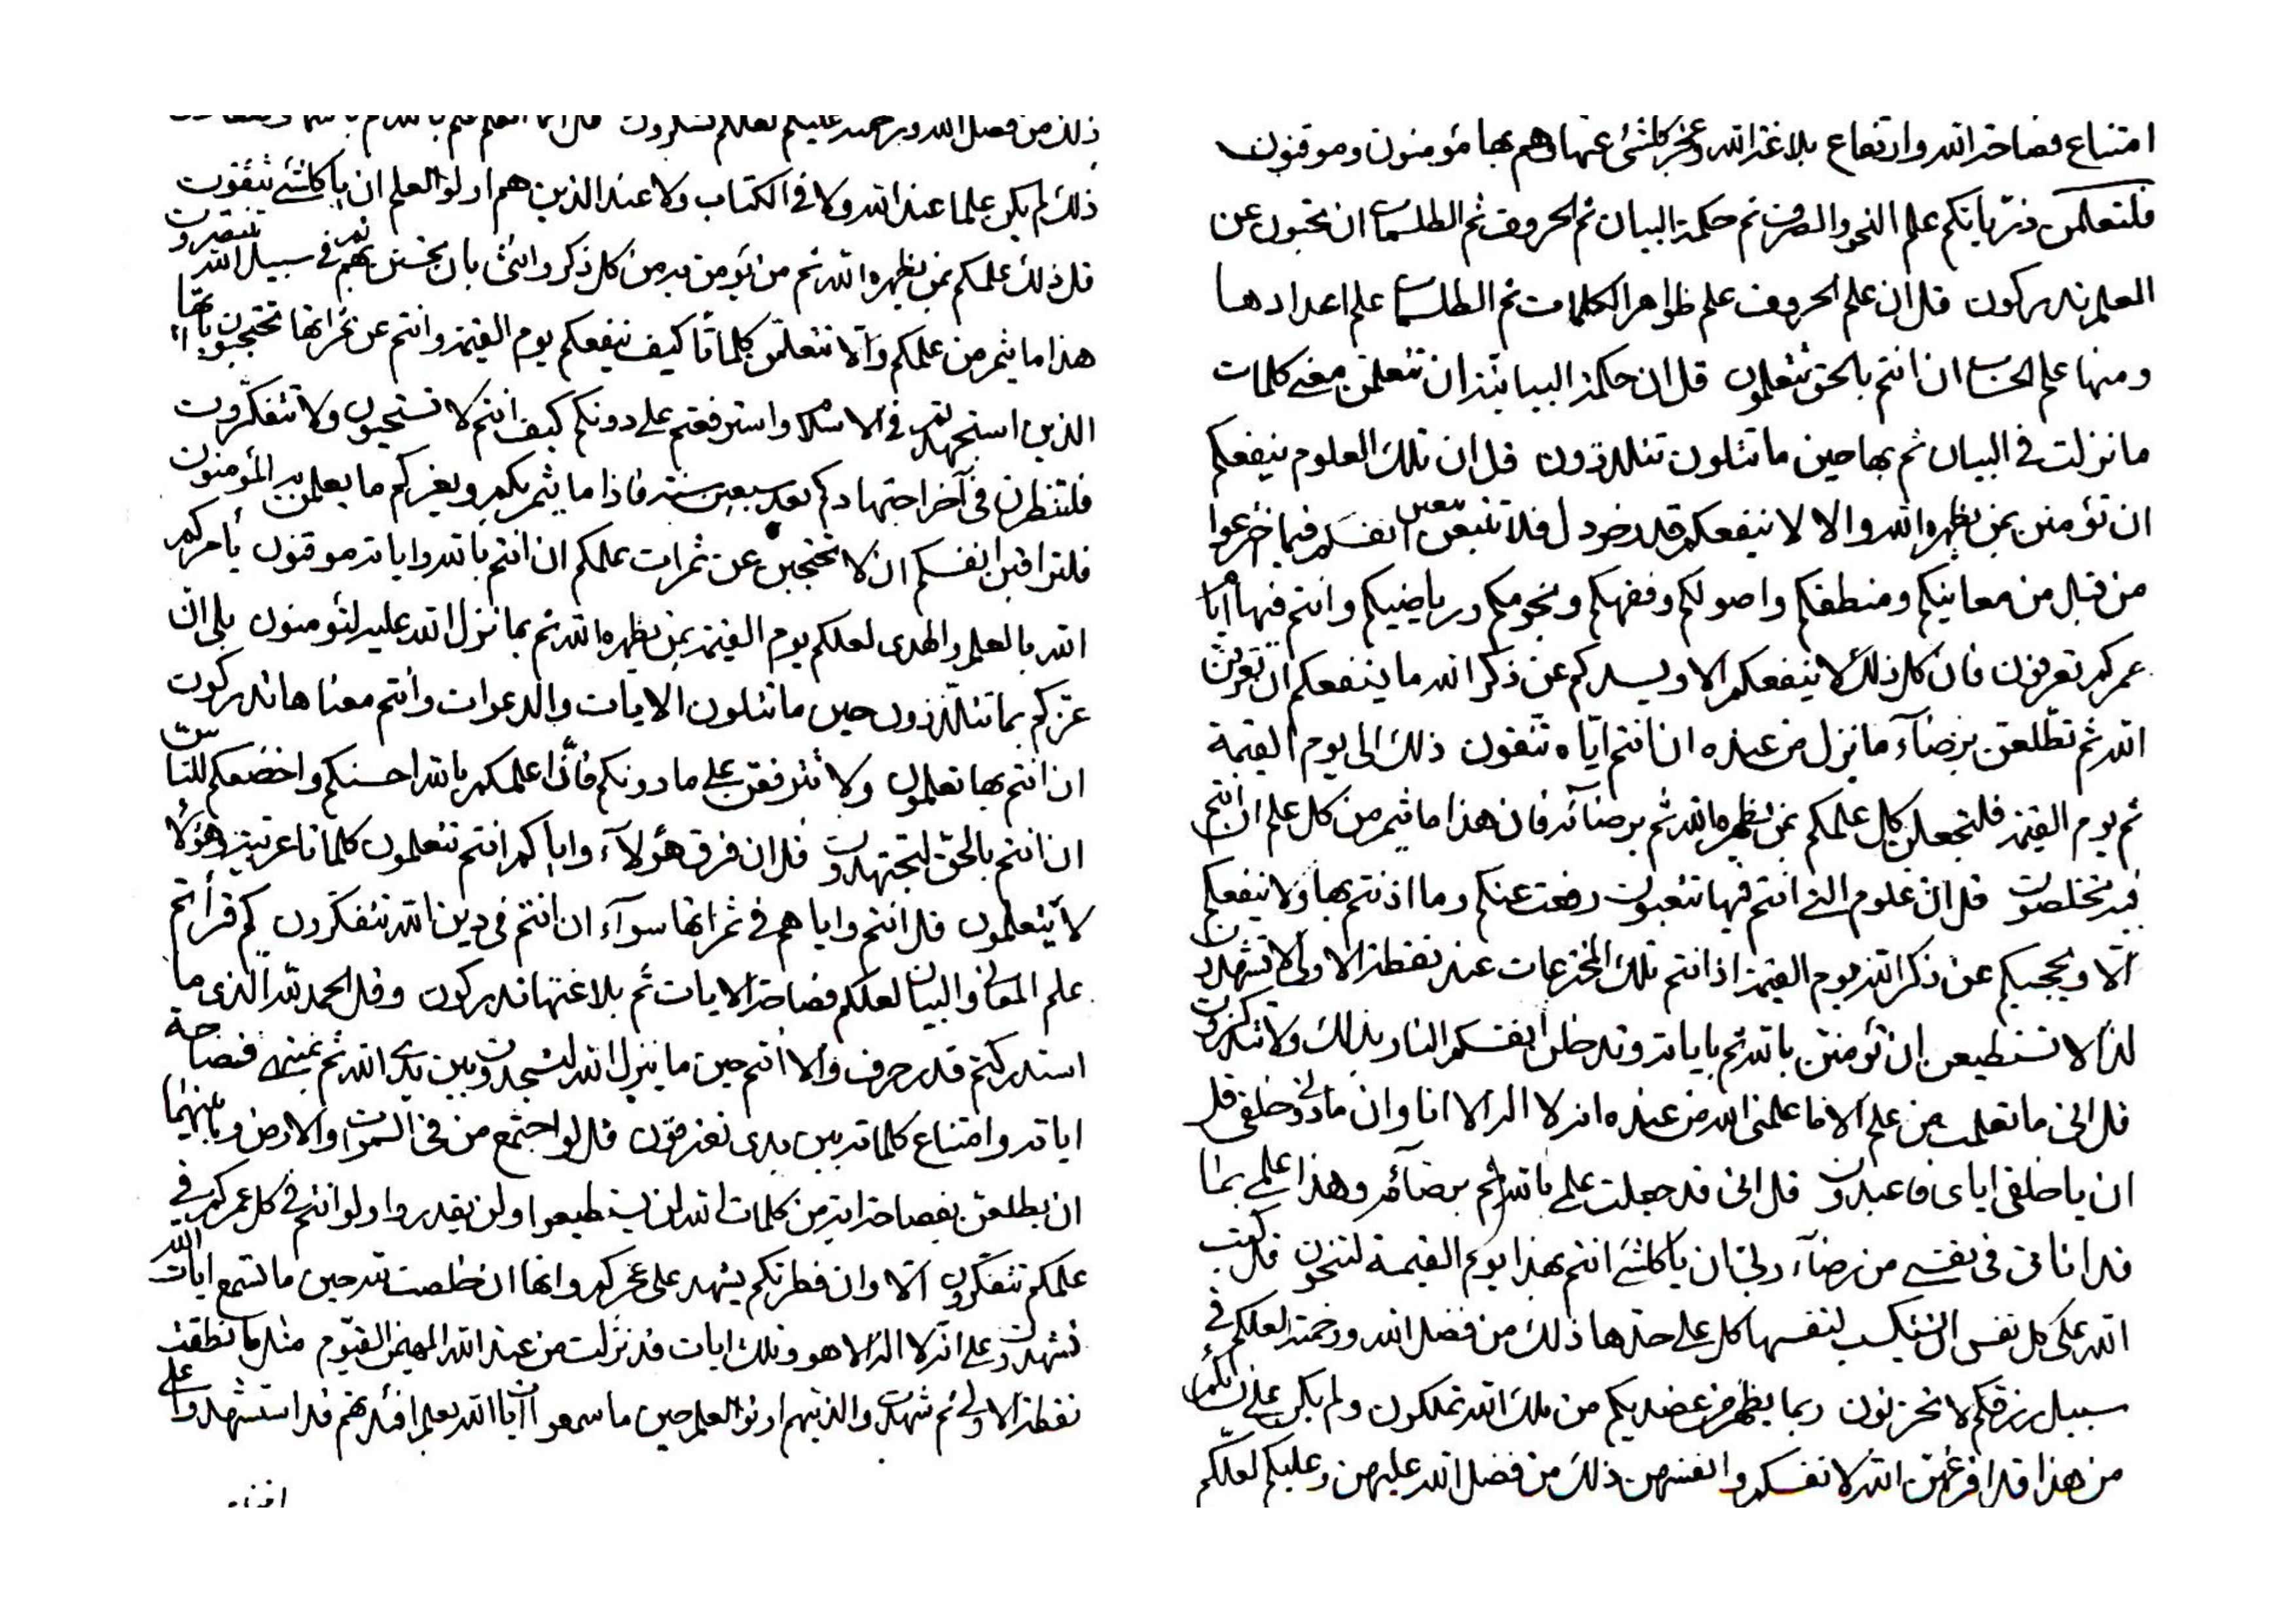 امتناع فصاحة الله وارتفاع بلاغة الله وعجز كلشئ عنها وهم بها مؤمنون وموقنون
فلتعلمن ذرياتكم علم النحو والصرف ثم حكمة البيان ثم الحروف ثم الطلسمات ان تحبون عن
العلم تدركون قل ان علم الحروف علم ظواهر الكلمات ثم الطلسمات علم اعدادها
ومنها علم الحساب ان انتم بالحق تتعلمون قل ان حكمة البيانية ان تتعلمن معنى كلمات
ما نزلت في البيان ثم بها حين ما تتلون تتلذذون قل ان تلك العلوم ينفعكم
ان تؤمنن بمن يظهره الله والا لا ينفعكم قدر خردل فلا تتبعن انفسكم فيما اخترعوا
من قبل من معانيكم ومنطقكم واصولكم وفقهكم ونجومكم ورياضيكم وانتم فيها ايام
عمركم تعرفون فان كل ذلك لا ينفعكم الا ويسدكم عن ذكر الله ما ينفعكم ان تعرفن
الله ثم تطلعن برضآء ما نزل من عنده ان انتم اياه تتقون ذلك الى يوم القيمة
ثم يوم القيمة فلتجعلن كل علمكم بمن يظهره الله ثم برضائه فان هذا ما يثمر من كل علم ان انتم
فيه تخلصون قل ان علوم التي انتم فيها تتعبون رفعت عنكم وما اذنتم بها ولا ينفعكم
الا ويحجبكم عن ذكر الله يوم القيمة اذ انتم تلك المخترعات عند نقطة الاولى لا تشهدون
لذا لا تستطيعن ان تؤمنن بالله ثم باياته وتدخلن انفسكم النار بذلك ولا تتذكرون
قل اني ما تعلمت من علم الا ما علمني الله من عنده انه لا اله الا انا وان ما دوني خلقي قل
ان يا خلقي اياي فاعبدون قل اني قد جعلت علمي بالله ثم برضآئه وهذا علمي بما
قد اناني في نفسي من رضآء ربي ان يا كلشئ انتم بهذا يوم القيمة لتنجون قل كتب
الله على كل نفس ان يكسب لنفسها كل على حدها ذلك من فضل الله ورحمته لعلكم في
سبيل رزقكم لا تحزنون وبما يظهر من عضديكم من ملك الله تملكون ولم يكن على نسائكم
من هذا قد افرغهن الله لانفسكم وانفسهن ذلك من فضل الله عليهن وعليكم لعلكم
ذلك من فضل الله ورحمته عليكم لعلكم تشكرون
ذلك لم يكن علما عند الله ولا في الكتاب ولا عند الذين هم اولوا العلم ان يا كلشئ تتقون
قل ذلك علمكم بمن يظهره الله ثم من يؤمن به من كل ذكر وانثى بان يحسنن بهم ثم في سبيل الله تنصرون
هذا ما يثمر من علمكم والا تتعلمن كلماتا كيف ينفعكم يوم القيمة وانتم عن ثمراتها تحتجبون بها
الذين استجهدتم في الاسلام واسترفعتم على دونكم كيف انتم لا تستحيون ولا تتفكرون
فلتنظرن في آخر اجتهادكم بعد سبعين سنة فاذا ما يثمر بكم ويغركم ما يعلمن به المؤمنون
فلتراقبن انفسكم ان لا تحتجبن عن ثمرات علمكم ان انتم بالله واياته موقنون يأمركم
الله بالعلم والهدى لعلكم يوم القيمة بمن يظهره الله ثم بما نزل الله عليه لتؤمنون بلى ان
عزكم بما تتلذذون حين ما تتلون الايات والدعوات وانتم معناها تدركون
ان انتم بها تعلمون ولا تترفعن على ما دونكم فان اعلمكم بالله احسنكم واخضعكم للناس
ان انتم بالحق لتجتهدون قل ان فرق هؤلآء واياكم انتم تتعلمون كلماتا عربية وهؤلآء
لا يتعلمون قل انتم واياهم في ثمراتها سوآء ان انتم في دين الله تتفكرون كم قرأتم
علم المعاني والبيان لعلكم فصاحة الايات ثم بلاغتها تدركون وقل الحمد لله الذي ما
استدركتم قدر حرف والا انتم حين ما ينزل الله لتسجدون بين يدي الله ثم بمنتهى فصاحة
اياته وامتناع كلماته بين يدي تعترفون قل لو اجتمع من في السموات والارض وما بينهما
ان يطلعن بفصاحة اية من كلمات الله لن يستطيعوا ولن يقدروا ولو انتم في كل عمركم في
علمكم تتفكرون الا وان فطرتكم يشهد على عجزكم وانها ان خلصت لله حين ما تسمع ايات الله
تشهدن على انه لا اله الا هو وتلك ايات قد نزلت من عند الله المهيمن القيوم مثل ما نطقت
نقطة الاولى ثم شهدت والذينهم اولوا العلم حين ما سمعوا ايات الله يعلم افئدتهم قد استشهدوا على
امتناع